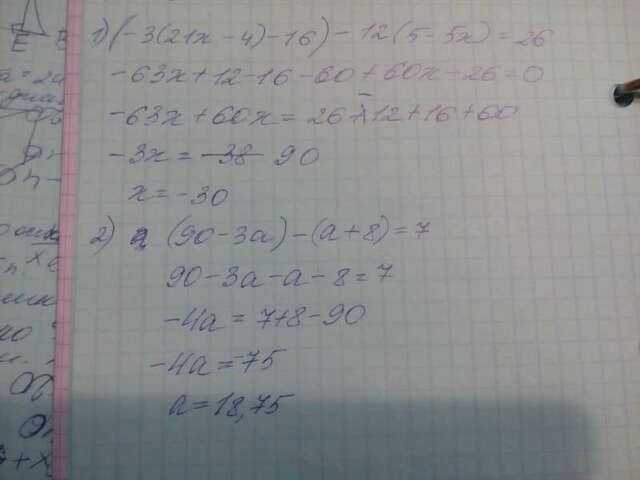 E
1) (-3(21x - 4) - 16) - 12(5 - 5x) = 26
a = 24
-63x + 12 - 16 - 60 + 60x - 26 = 0
-63x + 60x = 26 - 12 + 16 + 60
-3x = -38 90
x = -30
2) (90 - 3a) - (a + 8) = 7
90 - 3a - a - 8 = 7
-4a = 7 + 8 - 90
-4a = -75
a = 18,75